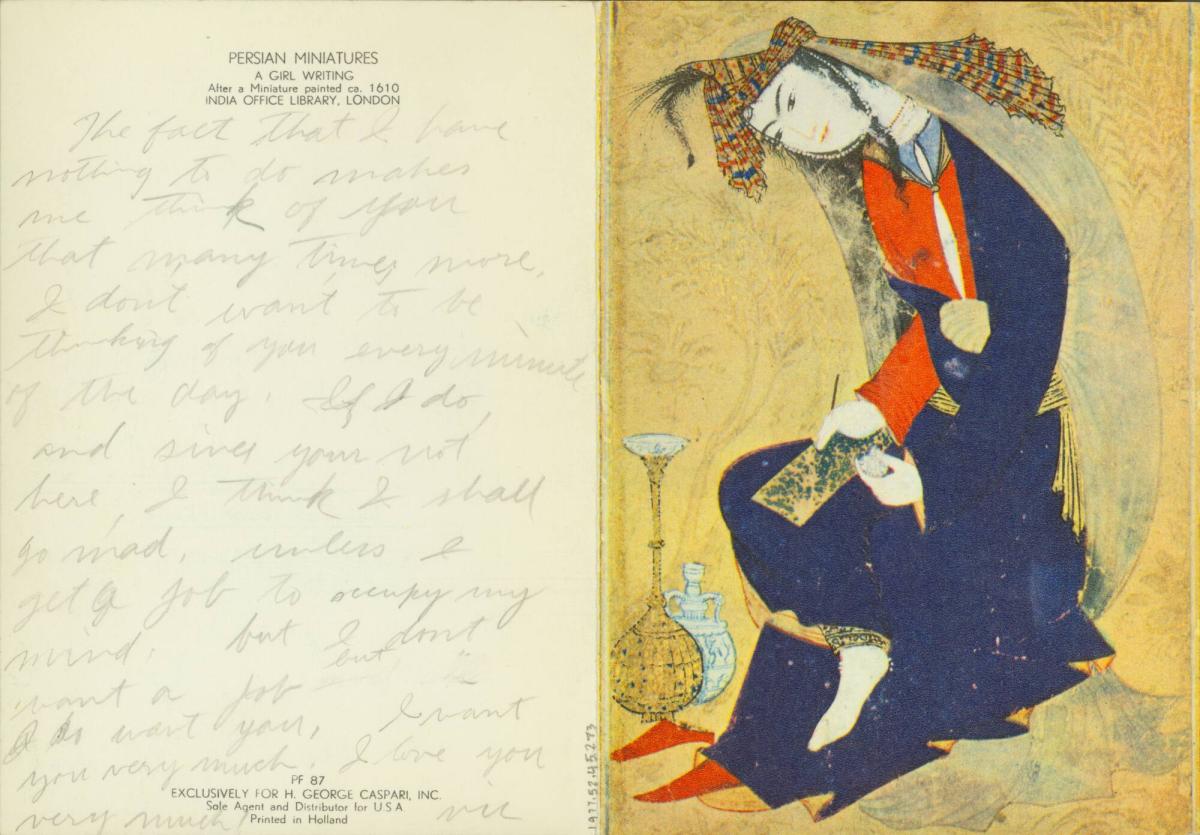 PERSIAN MINIATURES
A GIRL WRITING
After a Miniature painted ca. 1610
INDIA OFFICE LIBRARY, LONDON
The fact that I have
nothing to do makes
me think of you
that many times more.
I dont want to be
thinking of you every minute
of the day. If I do,
and since your not
here, I think I shall
go mad, unless I
get a job to occupy my
mind. but I dont
want a job but
I do want you, I want
you very much. I love you
very much! vic
PF 87
EXCLUSIVELY FOR H. GEORGE CASPARI, INC.
Sole Agent and Distributor for U S A
Printed in Holland
1977.52.45.273